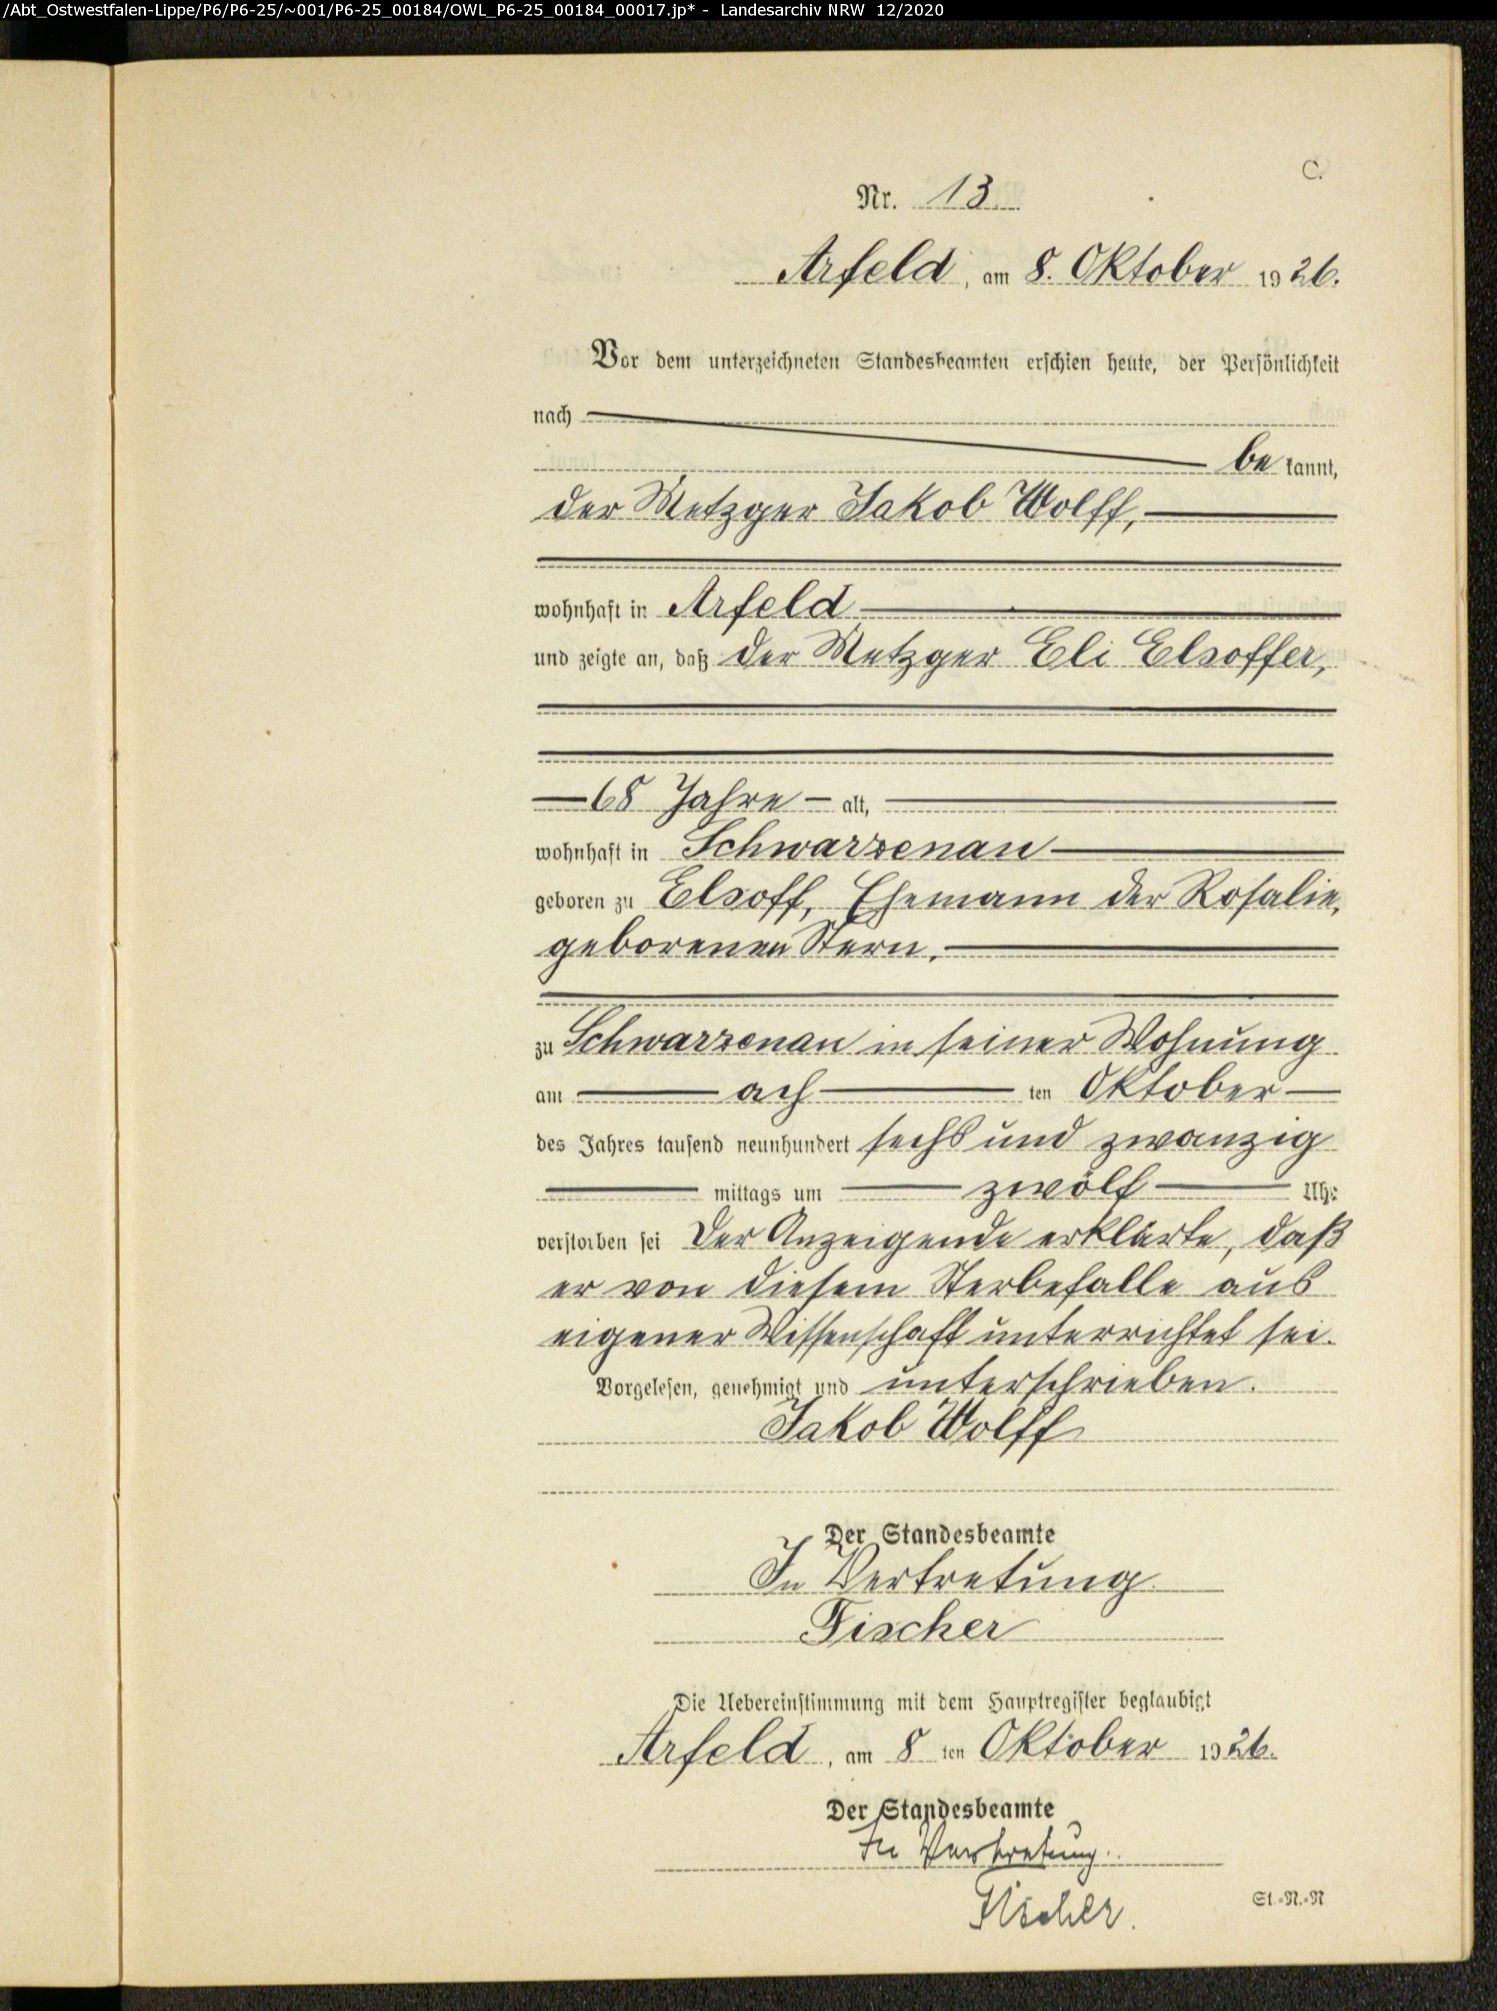 /Abt_Ostwestfalen-Lippe/P6/P6-25/~001/P6-25_00184/OWL_P6-25_00184_00017.jp* - Landesarchiv NRW 12/2020
C.
Nr. 13.
Arfeld, am 8. Oktober 1926.
Vor dem unterzeichneten Standesbeamten erschien heute, der Persönlichkeit
nach
be kannt,
der Metzger Jakob Wolff,
wohnhaft in Arfeld
und zeigte an, daß der Metzger Eli Elsoffer,
68 Jahre alt,
wohnhaft in Schwarzenau
geboren zu Elsoff, Ehemann der Rosalie,
geborenen Stern,
zu Schwarzenau in seiner Wohnung
am ach ten Oktober
des Jahres tausend neunhundert sechs und zwanzig
mittags um zwölf Uhr
verstorben sei Der Anzeigende erklärte, daß
er von diesem Sterbefalle aus
eigener Wissenschaft unterrichtet sei.
Vorgelesen, genehmigt und unterschrieben.
Jakob Wolff
Der Standesbeamte
In Vertretung
Fischer
Die Uebereinstimmung mit dem Hauptregister beglaubigt
Arfeld, am 8 ten Oktober 1926.
Der Standesbeamte
In Vertretung.
Fischer.
St.-N.-R